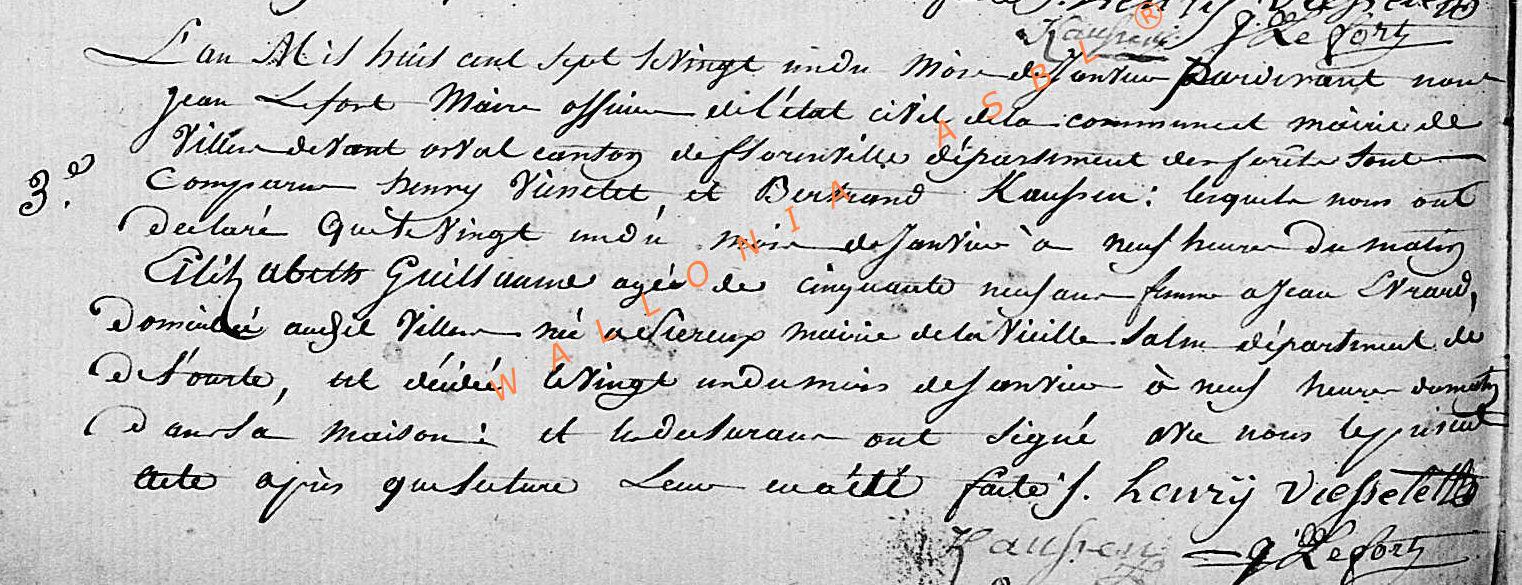 Kaussen J. Lefort
L'an Mil huit cent sept le vingt un du mois de Janvier pardevant nous
Jean Lefort Maire officier de l'état civil de la commune et mairie de
Villers devant orval canton de florenville département des forêts sont
3.e
Comparus henry Viesselet et Bertrand Kaussen : lesquels nous ont
déclaré que le vingt un du mois de Janvier à neuf heures du matin
Elizabeth Guillaume agée de cinquante neuf ans femme a Jean Evrard,
domiciliée audit Villers née a Siereux mairie de la Vieille Salm département de
de l'ourte, est décédée le vingt un du mois de Janvier à neuf heures du matin
dans sa maison : et les declarans ont signé avec nous le présent
acte après que lecture Leur en a été faite s. henrÿ viesselette
Kaussen J. Lefort
WALLONIA ASBL ®